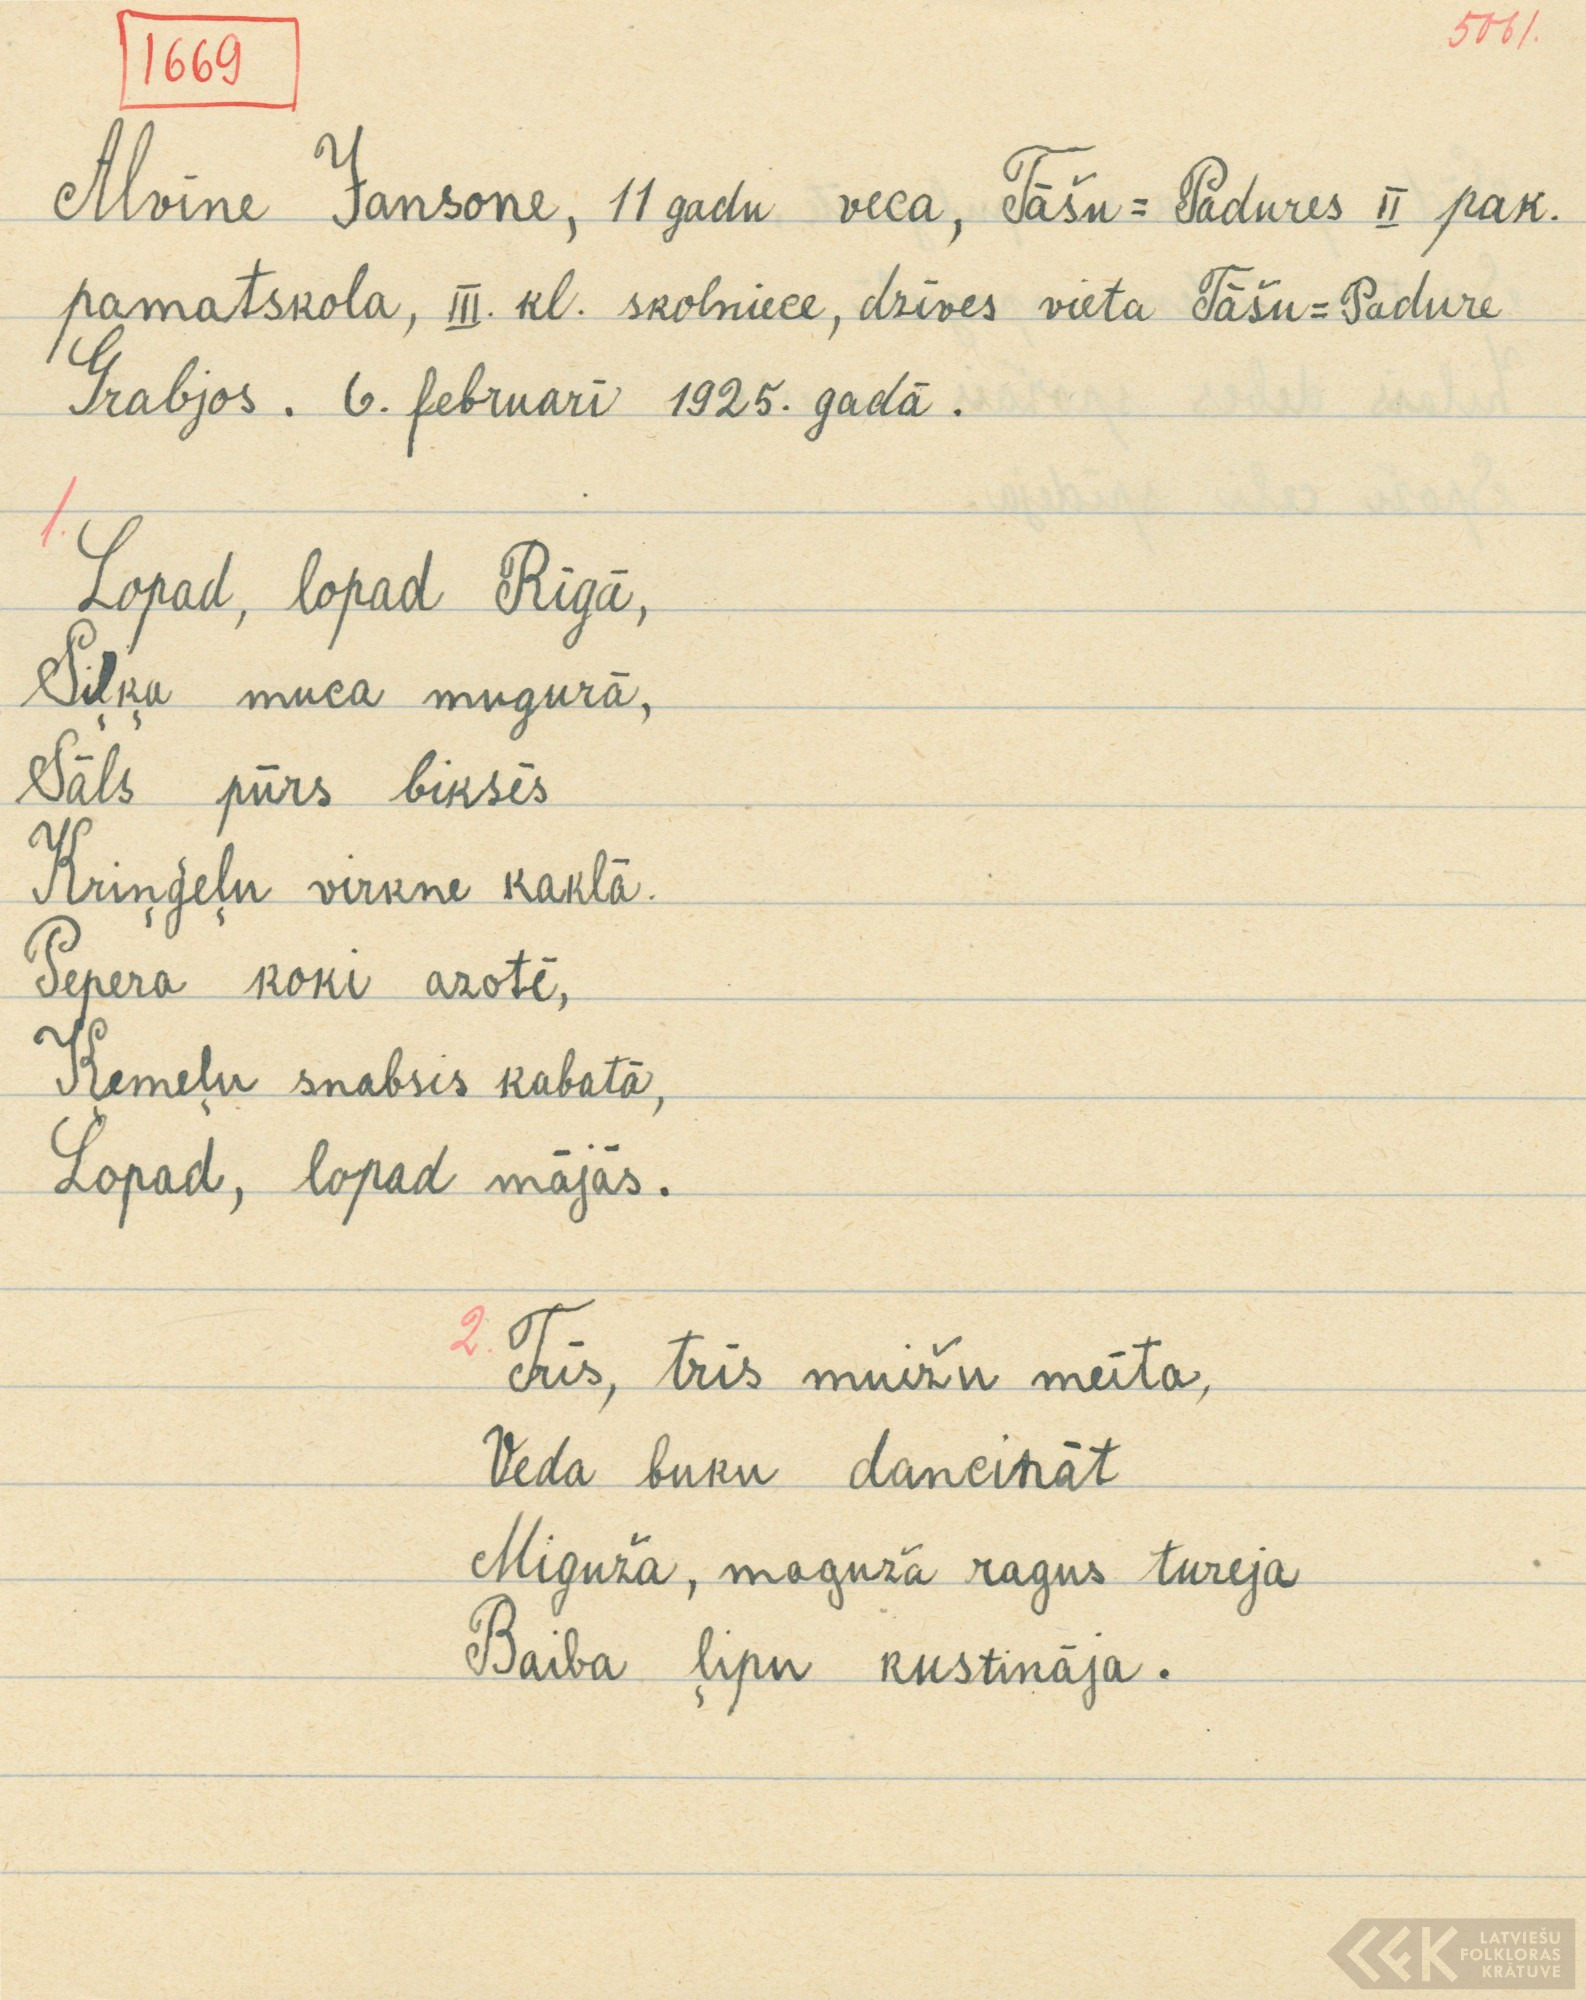 1669
5061.
Alvīne Jansone, 11 gadu veca, Tāšu=Padures II pak.
pamatskola, III. kl. skolniece, dzīves vieta Tāšu=Padure
Grabjos. 6. februarī 1925. gadā.
1.
Lopad, lopad Rīgā,
Siļķu muca mugurā,
Sāls pūrs biksēs
Kriņģeļu virkne kaklā.
Pepera koki azotē,
Ķemeļu snabsis kabatā,
Lopad, lopad mājās.
2. Trīs, trīs muižu meita,
Veda buku dancināt
Miguža, maguža ragus tureja
Baiba ļipu kustināja.
LATVIEŠU
FOLKLORAS
KRĀTUVE